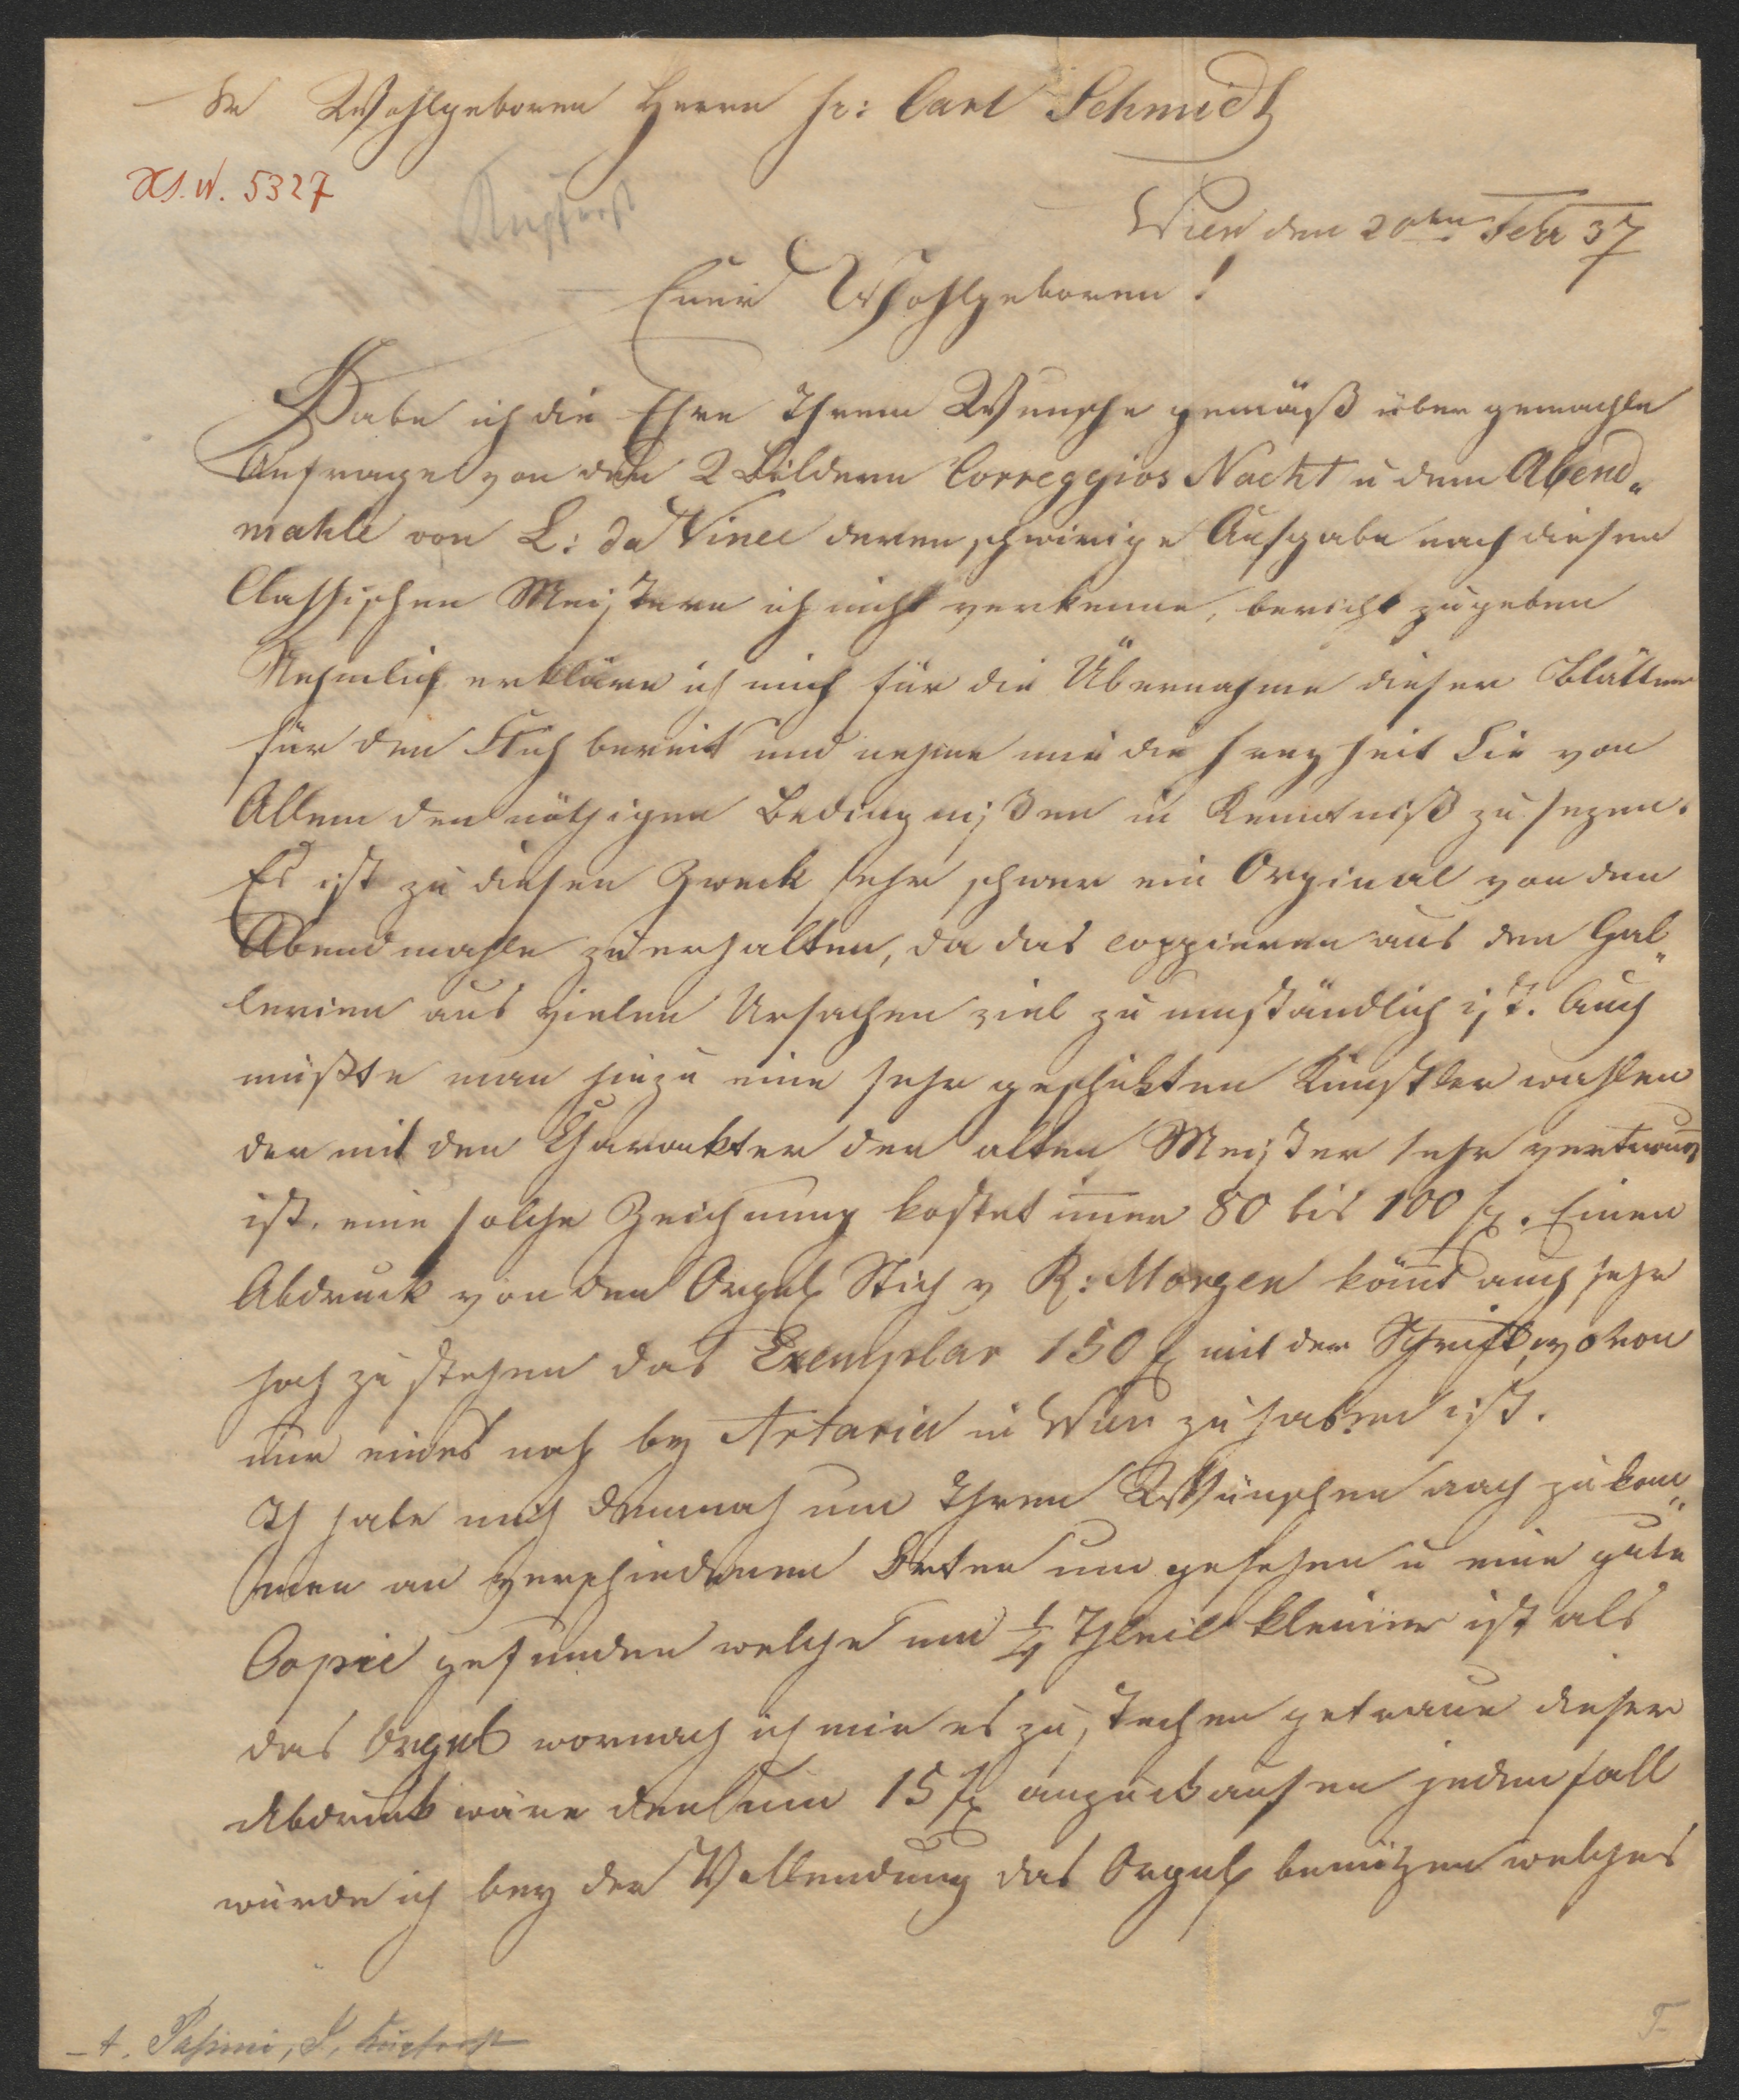 Sr Wohlgeboren Herrn Hr: Carl Schmidt
XI. W. 5327
Kupferst
Wien den 20ten Febr 37
Euer Wohlgeboren!
Habe ich die Ehre Ihrem Wunsche gemäß über gemachte
Anfrage von den 2 Bildern Correggios Nacht u dem Abend„
mahle von L: da Vinci deren schwirige Aufgabe nach diesen
Classischen Meistern ich nicht verkenne, bericht zugeben
Nehmlich erkläre ich mich für die Übernahme dieser Blätter
für den Stich bereit und nehme mir die Freyheit Sie von
Allem den nöthigen Bedingnißen in Kenntniß zu sezen.
Es ist zu diesen Zweck sehr schwer ein Orginal von den
Abendmahle zu erhalten, da das coppieren aus den Gal„
lerien aus vielen Ursachen viel zu umständlich ist. Auch
müßte man hiezu eine sehr geschikten Künstler wahlen
der mit den Charakter der alten Meister sehr vertraut
ist. eine solche Zeichnung kostet im̅er 80 bis 100 f. Einen
Abdruck von den Orgul Stich v R: Morgen köm̅t auch sehr
hoch zu stehen das Exemplar 150 f mit der Schrift, wovon
nur eines noch by Artaria in Wien zu haben ist.
Ich habe mich demnach um Ihren Wünschen nach zu kom„
men an verschiedenen Orten um gesehen u eine gute
Copie gefunden welche um ¼ Theil kleiner ist als
das Orgul wornach ich mir es zu stechen getraue dieser
Abdruck wäre den um 15 f anzuckaufen jeden fall
würde ich bey der Vollendung das Orgul benützen welches
A. Passini, J. Kupferst